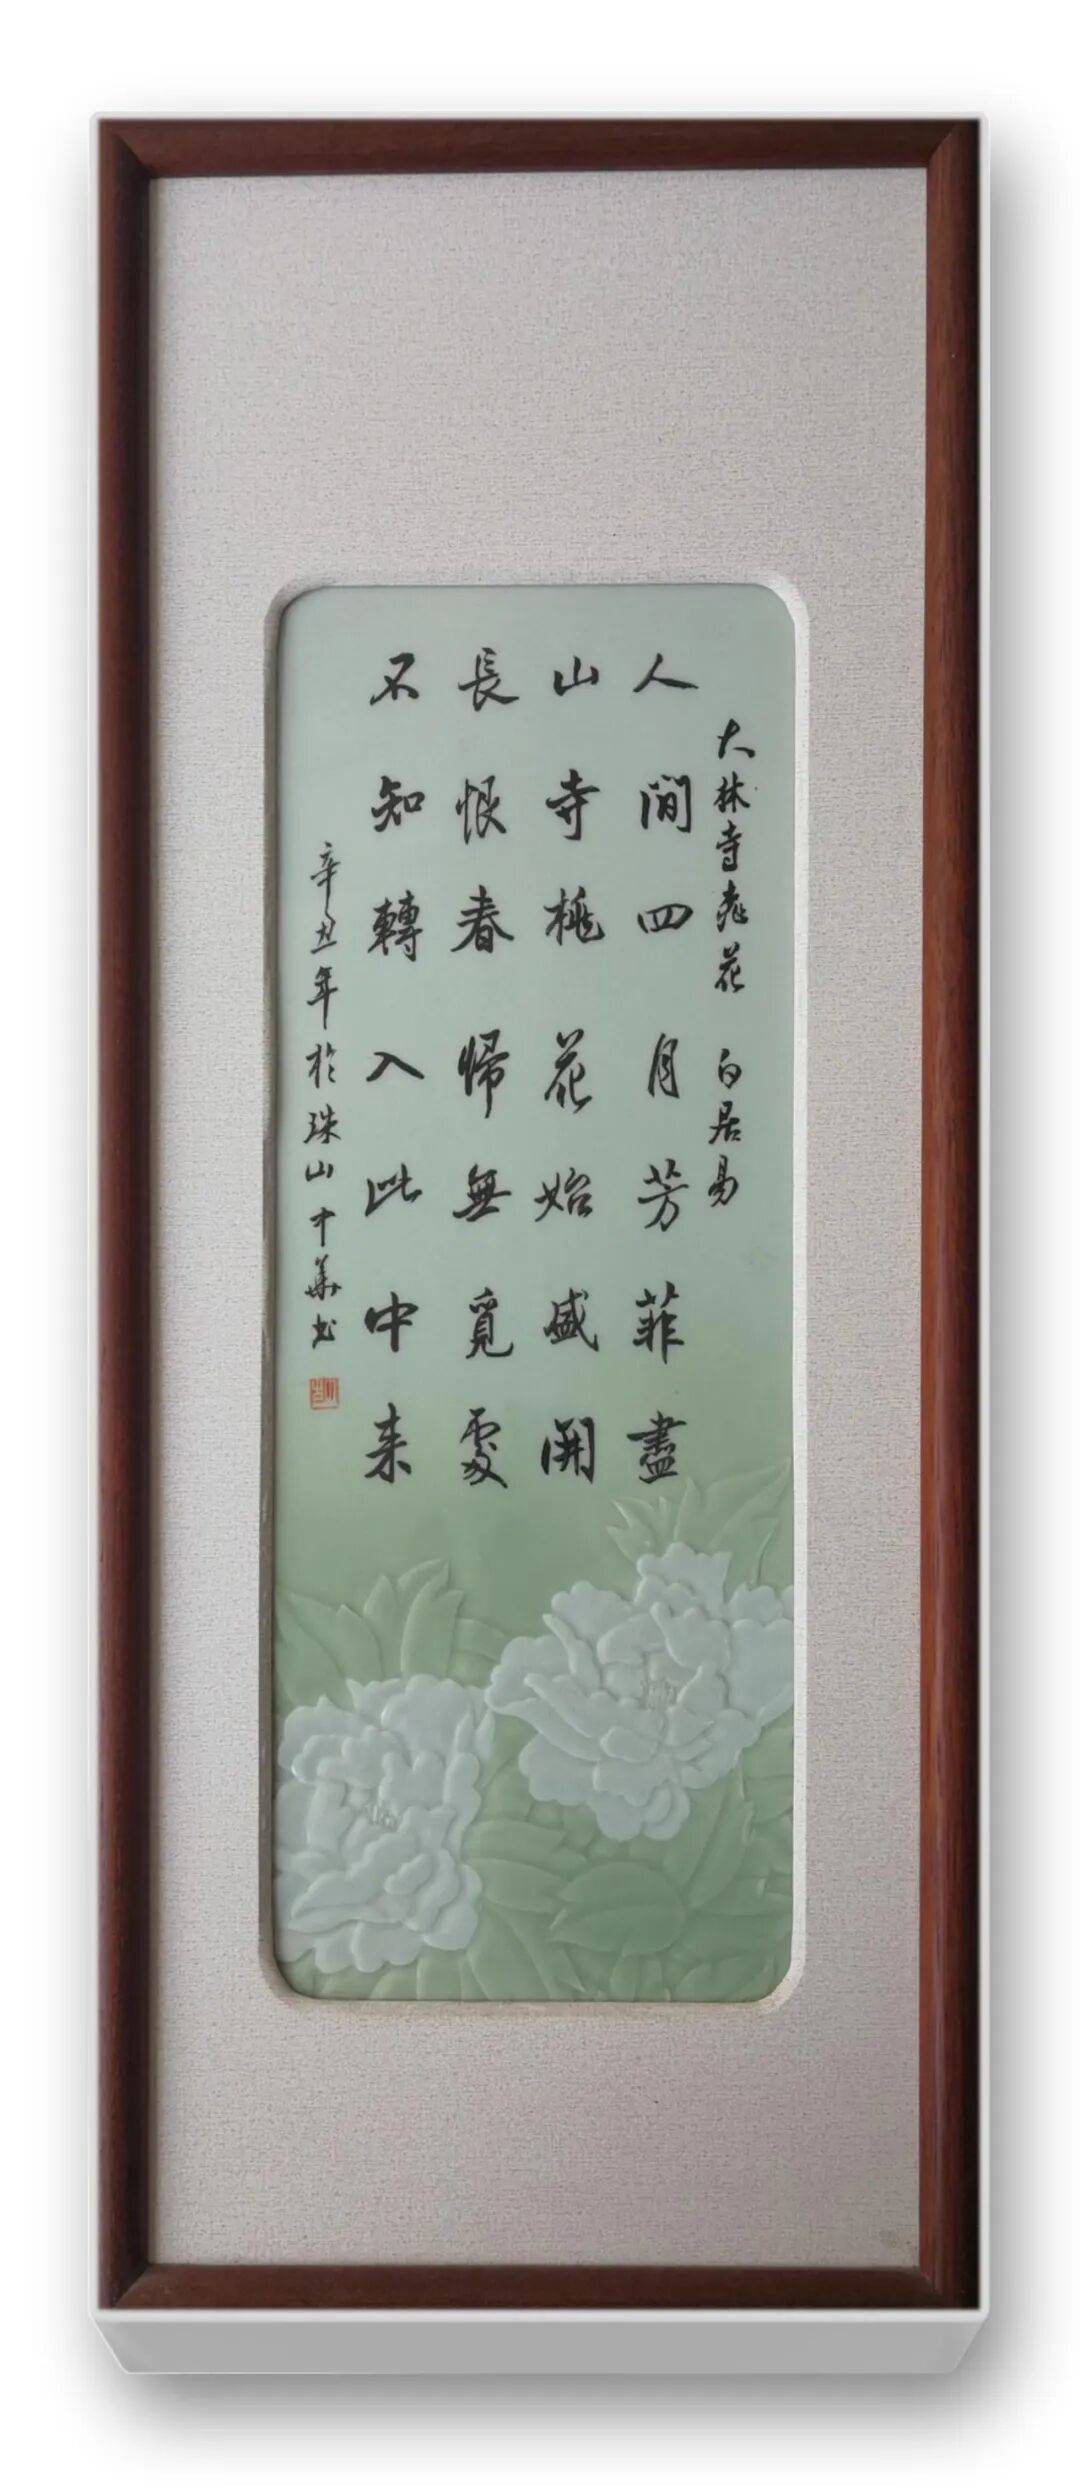 大林寺桃花 白居易
人間四月芳菲盡
山寺桃花始盛開
長恨春歸無覓處
不知轉入此中来
辛丑年於珠山十華书